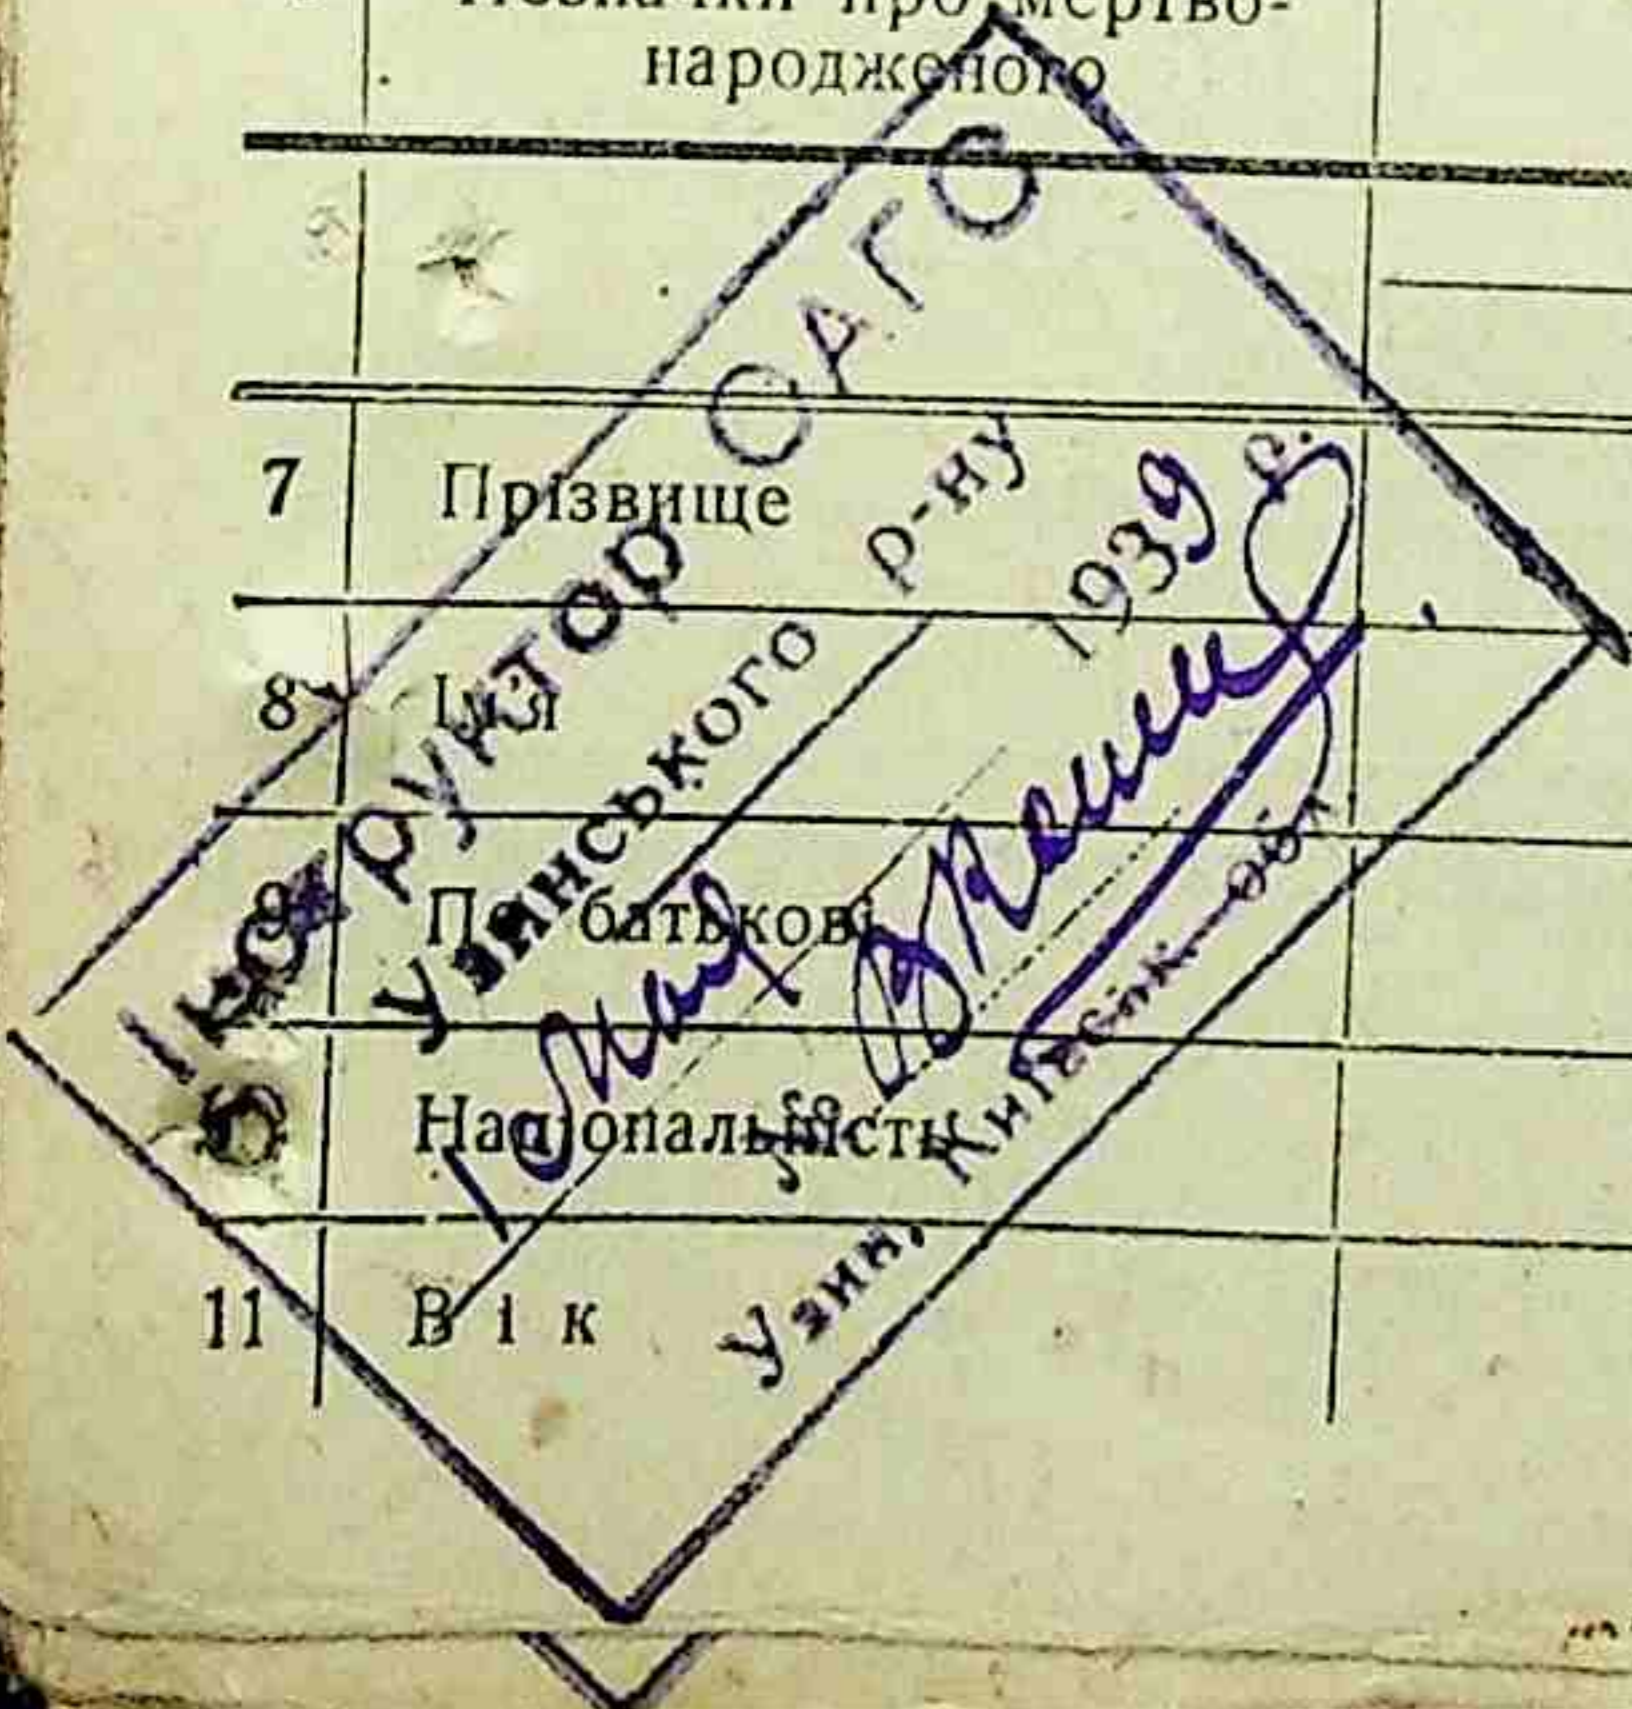 Позначки про мертво-
народженого
7 Прізвище
8 Ім'я
9 По батькові
Національність
11 Вік
Інструктор САГС
Узинського р-ну
1939 р.
Узин, Київськ. обл